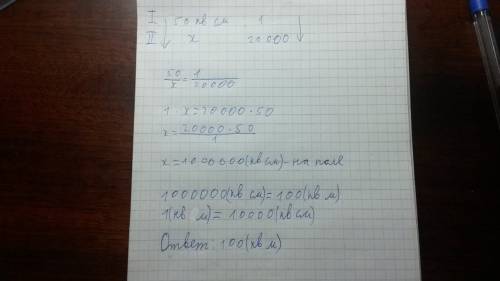 I 50 кв см 1
II x 20 000
50/x = 1/20000
1 · x = 20000 · 50
x = 20000 · 50/1
x = 1000000 (кв см) - на поле
1000000 (кв см) = 100 (кв м)
1 (кв м) = 10000 (кв см)
Ответ: 100 (кв м)